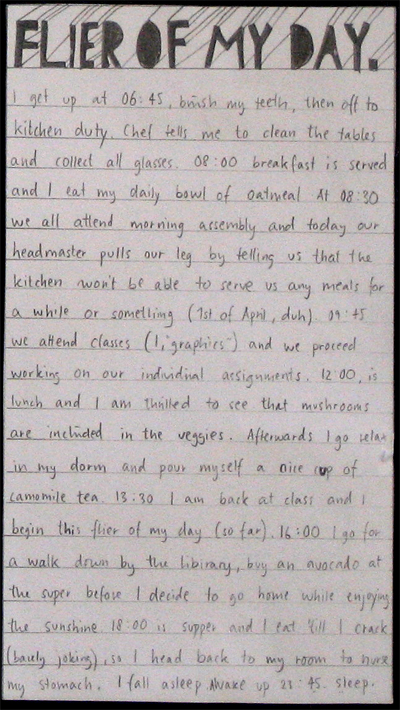 FLIER OF MY DAY.
I get up at 06:45, brush my teeth, then off to
kitchen duty. Chef tells me to clean the tables
and collect all glasses. 08:00 breakfast is served
and I eat my daily bowl of oatmeal At 08:30
we all attend morning assembly and today our
headmaster pulls our leg by telling us that the
kitchen won't be able to serve us any meals for
a while or something (1st of April, duh) 09:45
we attend classes (I, "graphics") and we proceed
working on our individual assignments. 12:00, is
lunch and I am thrilled to see that mushrooms
are included in the veggies. Afterwards I go relax
in my dorm and pour myself a nice cup of
camomile tea. 13:30 I am back at class and I
begin this flier of my day (so far). 16:00 I go for
a walk down by the libirary, buy an avocado at
the super before I decide to go home while enjoying
the sunshine 18:00 is supper and I eat 'till I crack
(barely joking), so I head back to my room to nurse
my stomach. I fall asleep. Awake up 23:45. Sleep.